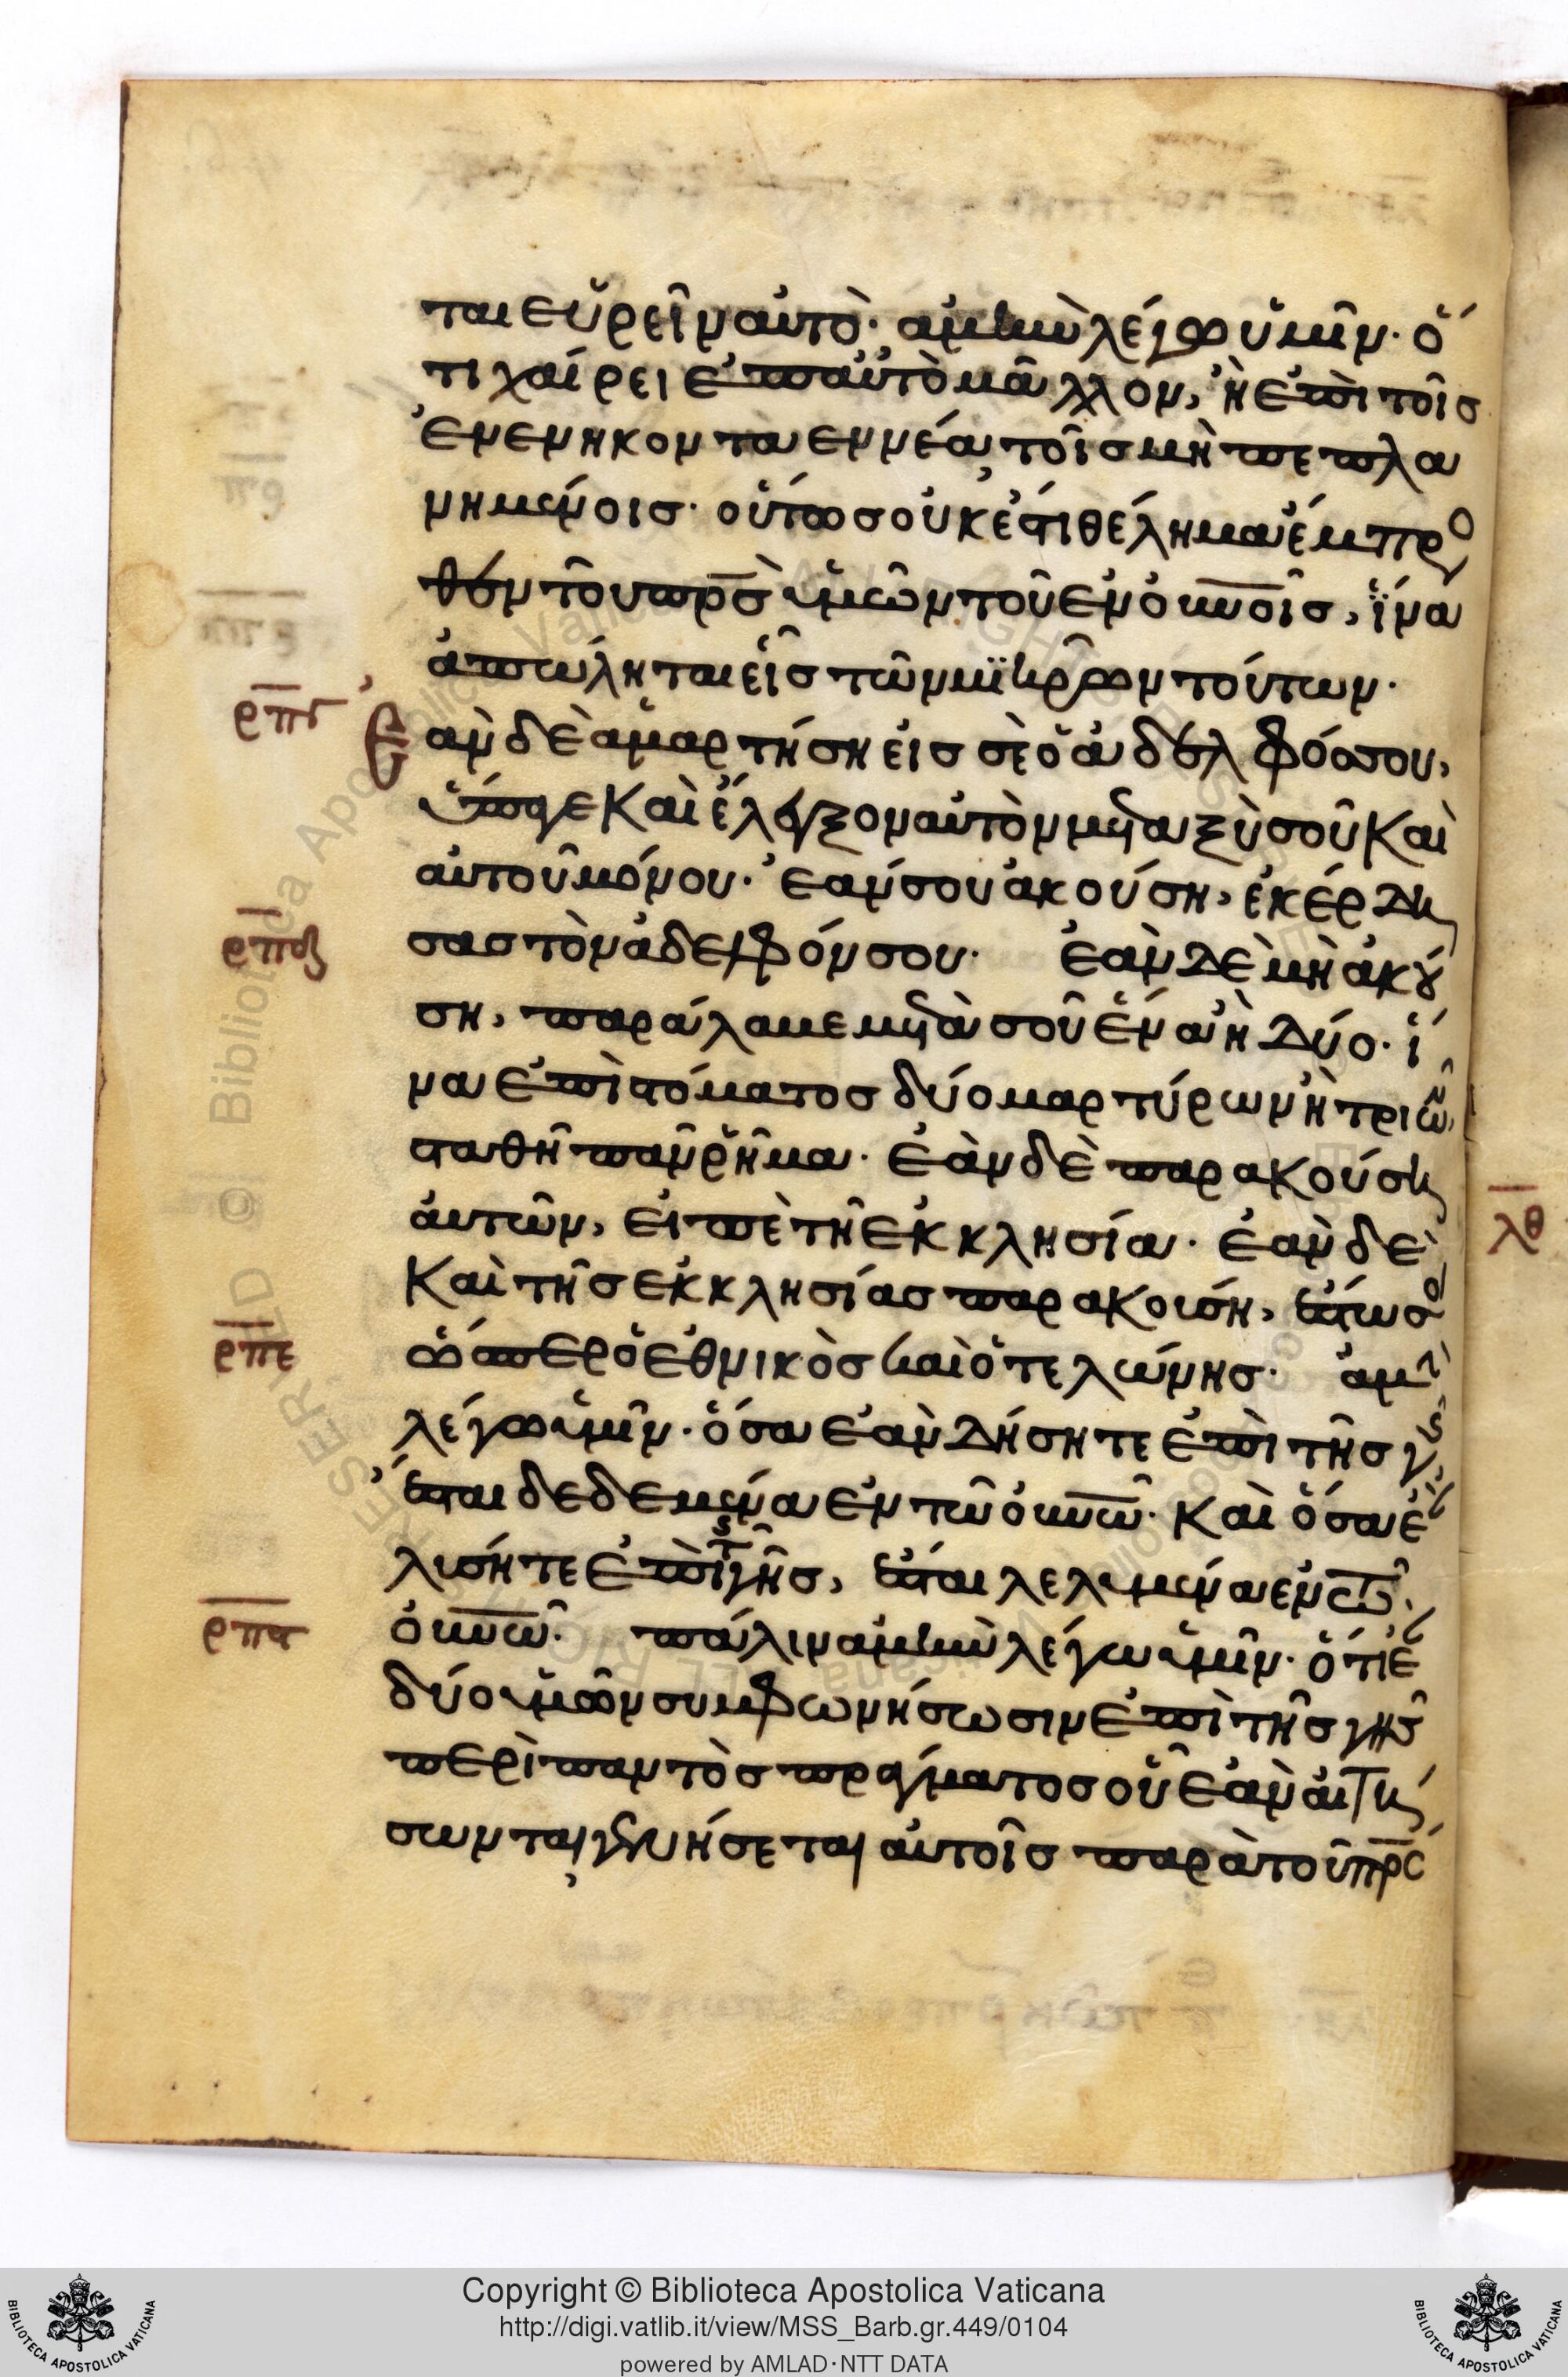 ται εὑρεῖν αὐτὸ· ἀμὴν λέγω ὑμῖν· ὅ
τι χαίρει ἐπ αὐτὸ μᾶλλον, ἢ ἐπὶ τοῖς
ἐνενηκοντα εννέα τοῖς μὴ πεπλα
νημένοις· οὕτως οὐκ ἔστι θέλημα ἔμπρο
σθεν τοῦ πρ̅ς ὑμῶν τοῦ ἐν οὐνοῖς, ἵνα
ἀπώληται εἷς τῶν μϊκρῶν τούτων·
ρπγ Ἐὰν δὲ ἁμαρτήση εἰς σὲ ὁ ἀδελφός σου,
ὕπαγε καὶ ἔλεγξον αὐτὸν μεταξὺ σοῦ καὶ
αὐτοῦ μόνου· ἐάν σου ἀκούση, ἐκέρδη
ρπδ σας τὸν ἀδελφόν σου· ἐὰν δὲ μὴ ἀκού
ση, παράλαμε μετὰ σοῦ ἕνα ἢ δύο· ἵ
να ἐπὶ στόματος δύο μαρτύρων ἢ τριῶν
σταθῆ πᾶν ῥῆμα· ἐὰν δὲ παρακούση
λθ
αὐτῶν, εἰπὲ τῆ ἐκκλησία· ἐὰν δὲ
καὶ τῆς ἐκκλησίας παρακούση, ἔστω σοι
ρπε ὥσπερ ὁ ἐθνικὸς καὶ ὁ τελώνης· ἀμὴν
λέγω ὑμῖν· ὅσα ἐὰν δήσητε ἐπὶ τῆς γῆς
ἔσται δεδεμένα ἐν τῶ οὐνῶ· καὶ ὅσα ἐὰν
λύσητε ἐπὶ τῆς γῆς, ἔσται λελυμένα ἐν τῶ
ρπϛ οὐνῶ· πάλιν ἀμὴν λέγω ὑμῖν· ὅτι ἐὰν
δύο ὑμῶν συμφωνήσωσιν ἐπὶ τῆς γῆς
περὶ παντὸς πράγματος οὗ ἐὰν αἰτή
σωνται, γενήσεται αὐτοῖς παρὰ τοῦ πρ̅ς
Copyright © Biblioteca Apostolica Vaticana
http://digi.vatlib.it/view/MSS_Barb.gr.449/0104
powered by AMLAD·NTT DATA